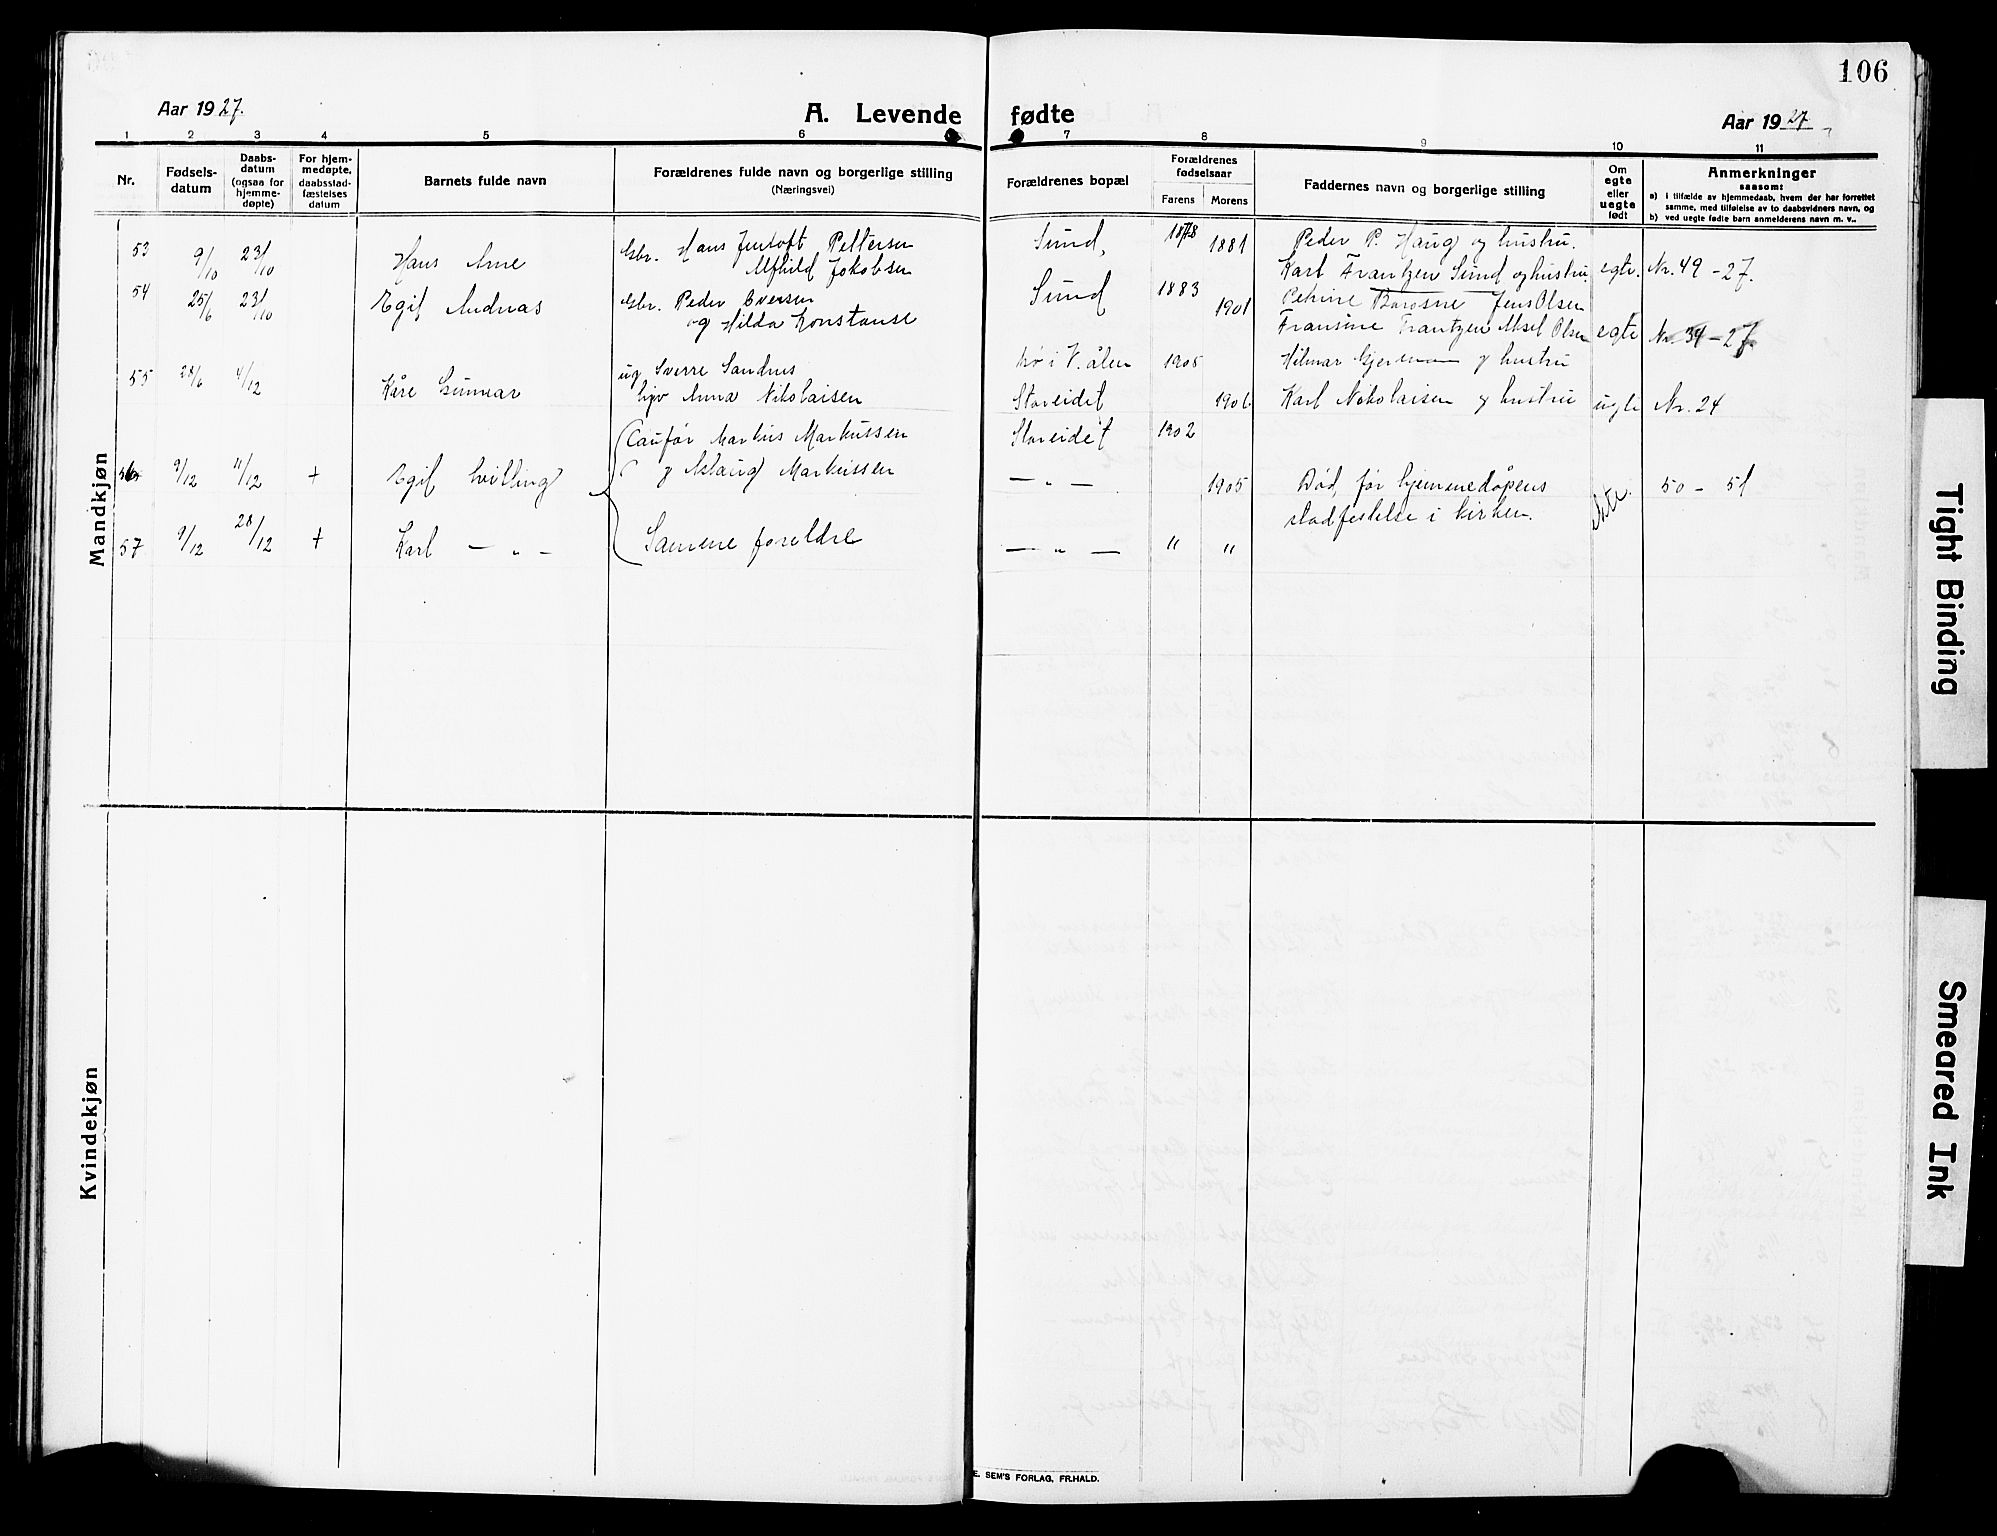 106
Aar 1927.
A. Levende fødte
Aar 1927
1 2 3 4 5 6 7 8 9 10 11
Nr.
Fødsels-
datum
Daabs-
datum
(ogsaa for
hjemme-
døpte)
For hjem-
medøpte,
daabsstad-
fæstelses
datum
Barnets fulde navn
Forældrenes fulde navn og borgerlige stilling
(Næringsvei)
Forældrenes bopæl
Forældrenes
fødselsaar
Farens Morens
Faddernes navn og borgerlige stilling
Om
egte
eller
uegte
født
Anmerkninger
saasom:
a) i tilfælde av hjemmedaab, hvem der har forrettet
samme, med tilføielse av to daabsvidners navn, og
b) ved uegte fødte barn anmelderens navn m. v..
Mandkjøn
53 9/10 23/10 Hans Arne Gbr. Hans Jentoft Pettersen Sund, 1878 1881 Peder P. Haug og hustru.
Alfhild Jakobsen Karl Frantzen Sund og hustru. egte. Nr. 49 - 27.
54 25/6 23/10 Egil Andreas Gbr. Peder Eversen Sund 1883 1901 Petrine Jens Olsen
og Hilda Konstanse Fransine Frantzen Aksel Olsen egte Nr. 34 - 27.
55 28/6 4/12 Kåre Gunnar ug Sverre Sandnes bø i V. ålen 1905 Hilmar og hustru
Anna Nikolaisen Storeidet 1906 Karl Nikolaisen og hustru ugte Nr. 24
56 9/12 11/12 + Egil tvilling Markus Markussen Storeidet 1902
og Aslaug Markussen — „ — 1905 Død, før hjemmedåpens ekte. 50 - 51
stadfestelse i kirken.
57 9/12 28/12 + Karl — „ — Samme foreldre — „ — „ „
Kvindekjøn
E. SEM'S FORLAG, FR.HALD.
Tight Binding
Smeared Ink